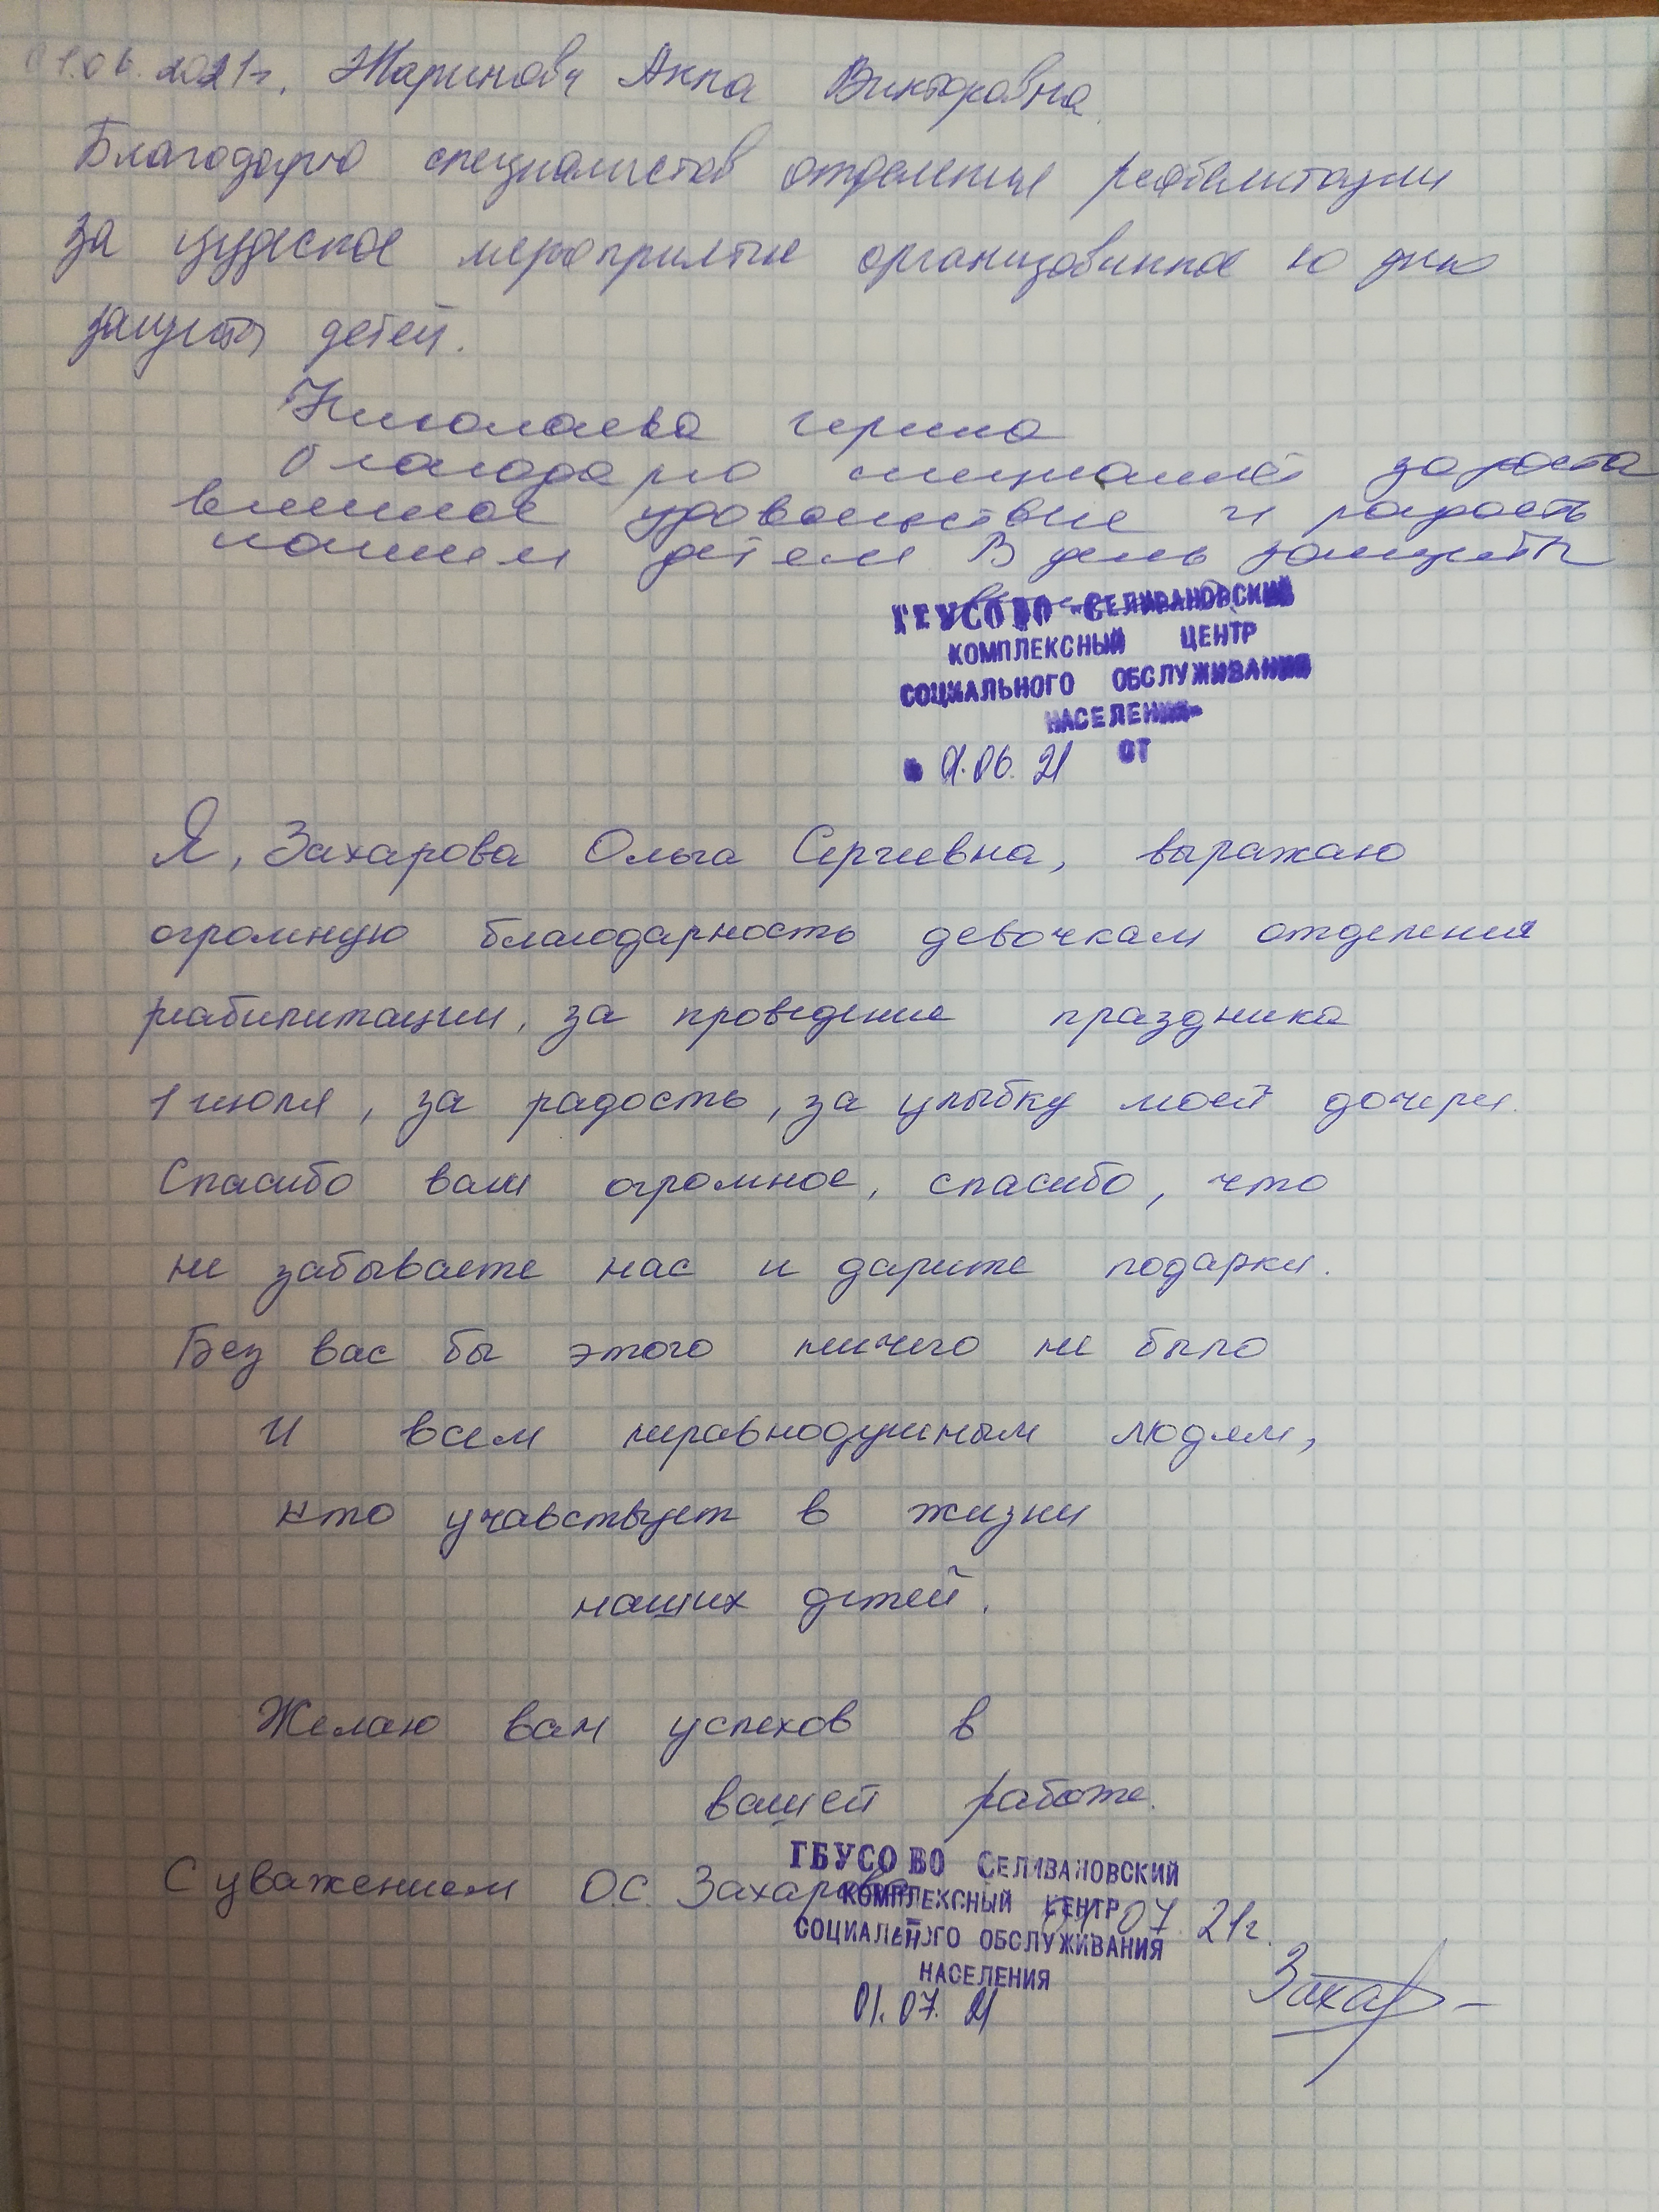 01.06.2021г. Жаринова Анна Викторовна.
Благодарю специалистов отделения реабилитации
за чудесное мероприятие организованное ко дню
защиты детей.
Николаева
благодарю за доста
вленное удовольствие и радость
нашим детям В день защиты
ГБУСО ВО «СЕЛИВАНОВСКИЙ
КОМПЛЕКСНЫЙ ЦЕНТР
СОЦИАЛЬНОГО ОБСЛУЖИВАНИЯ
НАСЕЛЕНИЯ»
01.06.21 ОТ
Я, Захарова Ольга Сергеевна, выражаю
огромную благодарность девочкам отделения
реабилитации, за проведение праздника
1 июля, за радость, за улыбку моей дочери.
Спасибо вам огромное, спасибо, что
не забываете нас и дарите подарки.
Без вас бы этого ничего не было
И всем неравнодушным людям,
кто учавствует в жизни
наших детей.
Желаю вам успехов в
вашей работе.
С уважением О.С. Захарова
ГБУСО ВО СЕЛИВАНОВСКИЙ
КОМПЛЕКСНЫЙ ЦЕНТР 07.21г.
СОЦИАЛЬНОГО ОБСЛУЖИВАНИЯ
НАСЕЛЕНИЯ
01.07.21
Захар